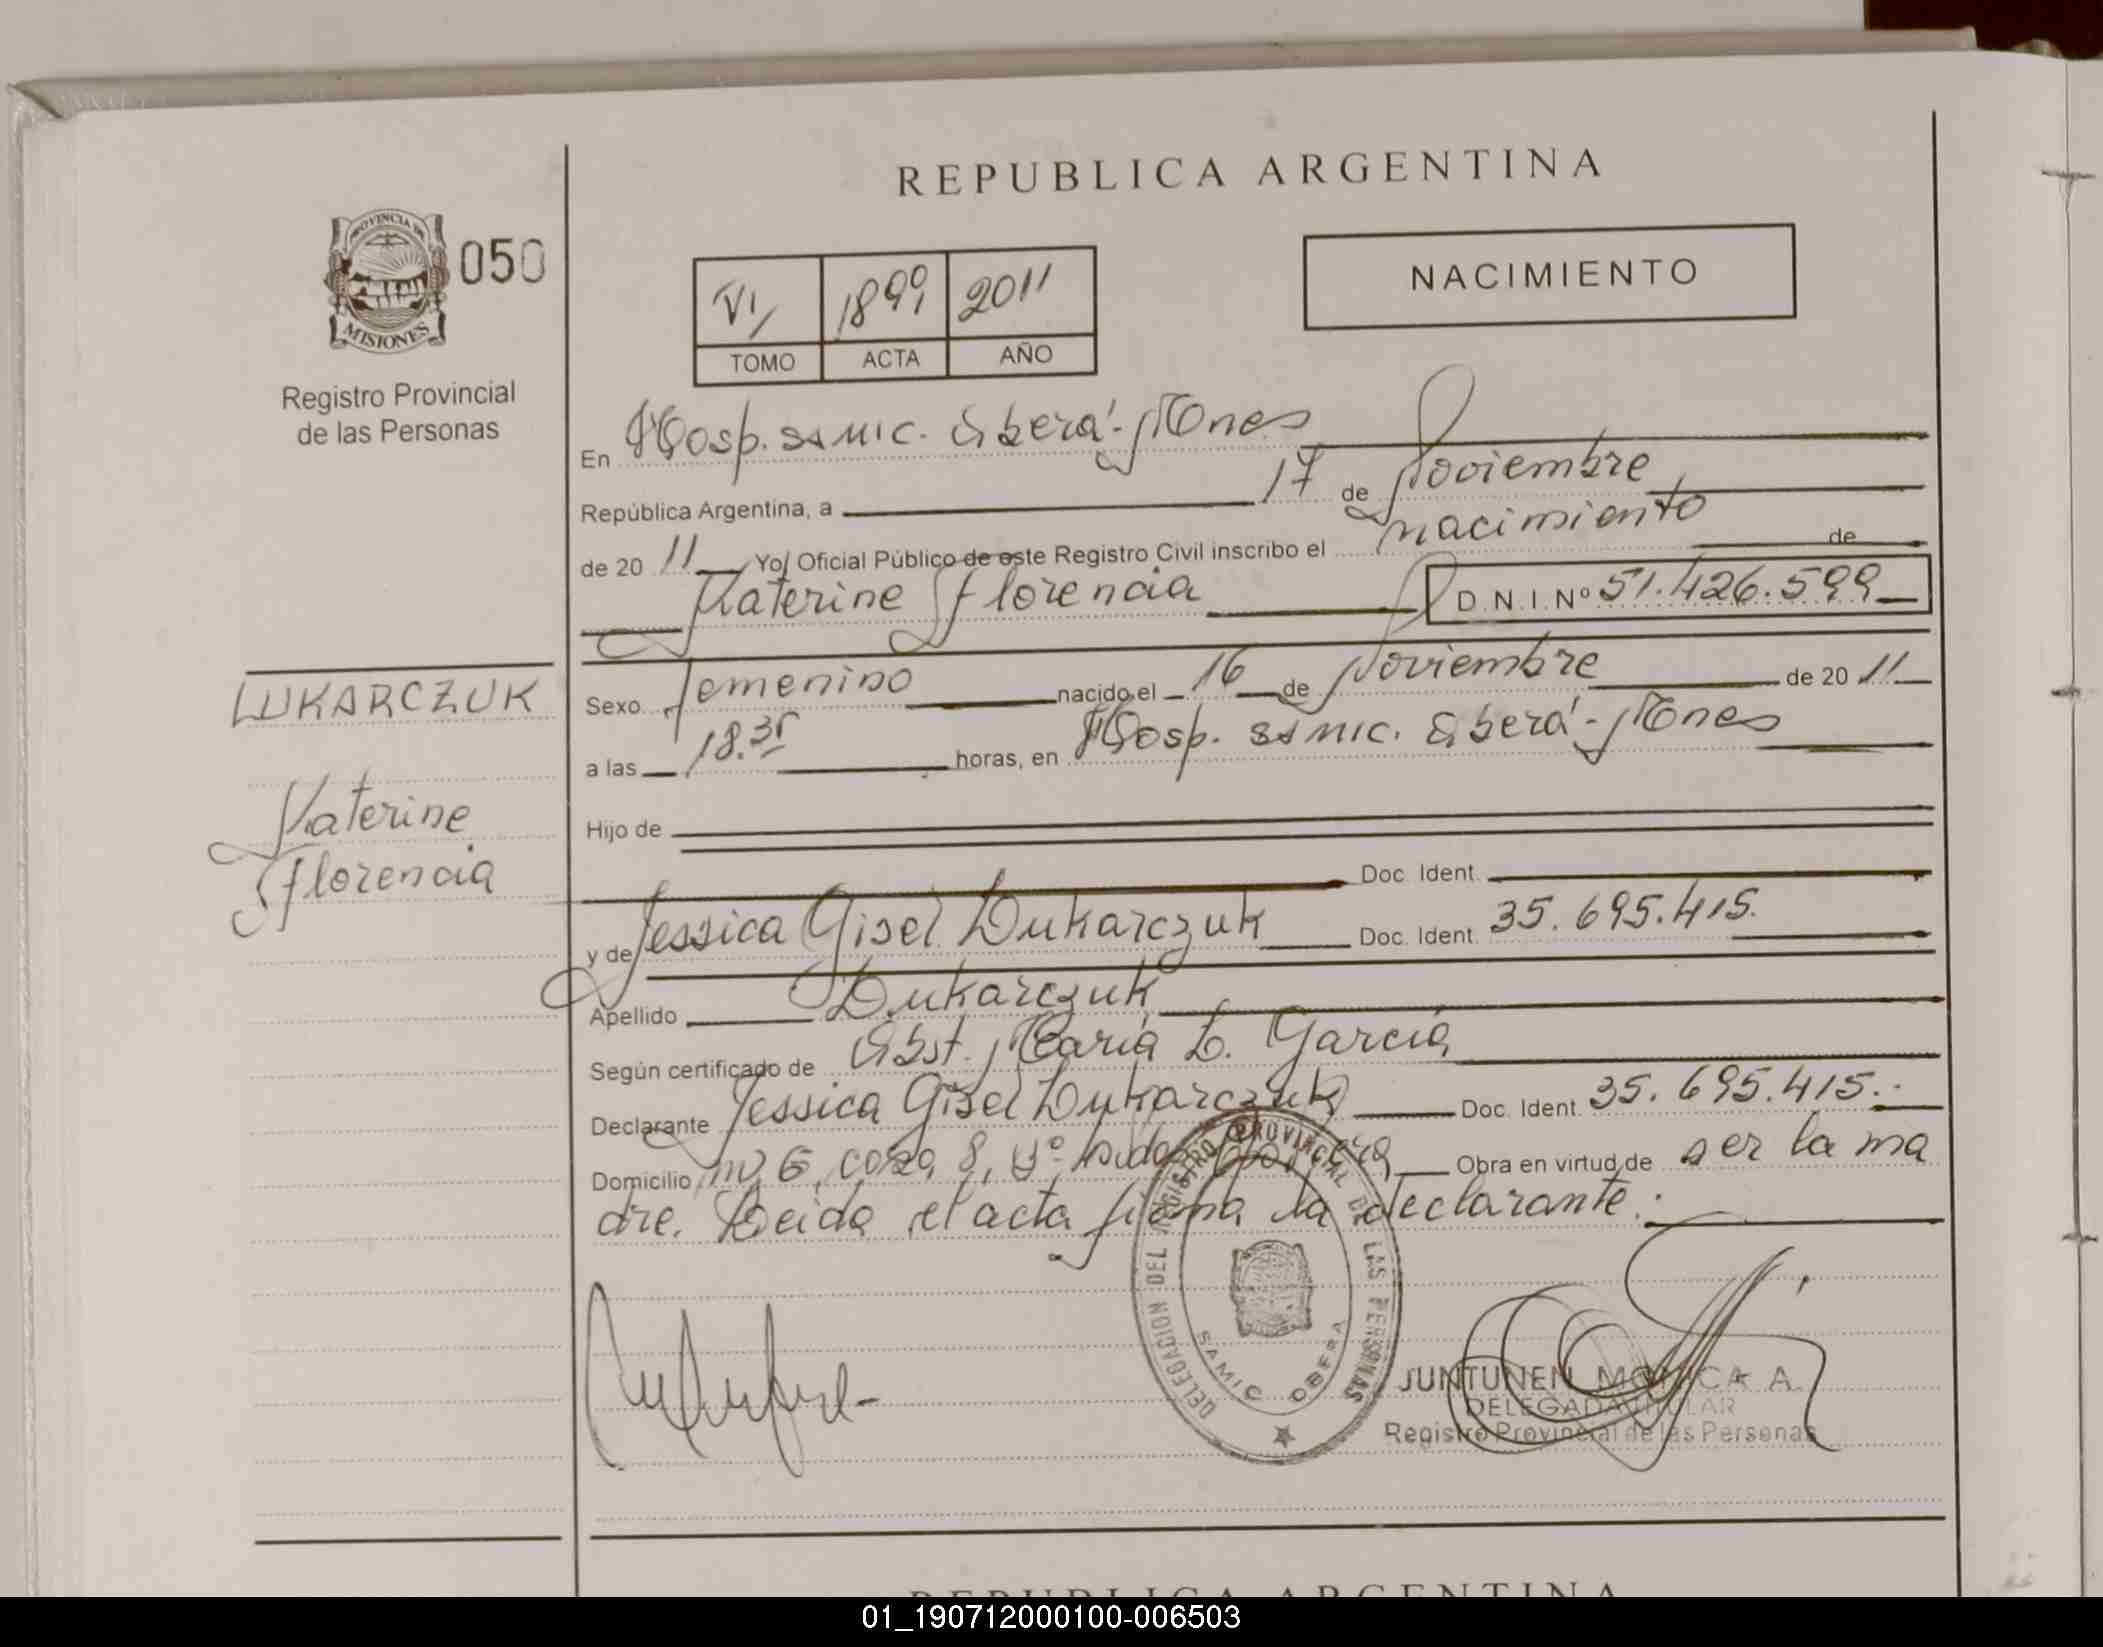 REPUBLICA ARGENTINA
PROVINCIA DE
MISIONES
050
Registro Provincial
de las Personas
VI 1899 2011
TOMO ACTA AÑO
NACIMIENTO
En Hosp. SAMIC. Oberá - Mnes
República Argentina, a 17 de Noviembre
de 20 11 Yo, Oficial Público de este Registro Civil inscribo el nacimiento de
Katerine Florencia D.N.I. Nº 51.426.599
LUKARCZUK
Katerine
Florencia
Sexo Femenino nacido el 16 de Noviembre de 20 11
a las 18.35 horas, en Hosp. SAMIC. Oberá - Mnes
Hijo de
Doc. Ident.
y de Jessica Gisel Lukarczuk Doc. Ident. 35.695.415.
Apellido Lukarczuk
Según certificado de Obst. María L. García
Declarante Jessica Gisel Lukarczuk Doc. Ident. 35.695.415.-
Domicilio casa 8, Obra en virtud de ser la ma
dre. Leida el acta firma la declarante.
DELEGACION DEL REGISTRO PROVINCIAL DE LAS PERSONAS
SAMIC OBERA
JUNTUNEN MONICA A.
DELEGADA TITULAR
Registro Provincial de las Personas
REPUBLICA ARGENTINA
01_190712000100-006503